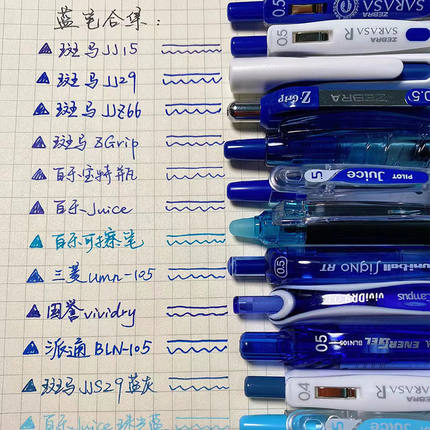 蓝笔合集：
斑马JJ15
斑马JJ29
斑马JJZ66
斑马ZGrip
百乐宝特瓶
百乐Juice
百乐可擦笔
三菱umn-105
国誉vividry
派通BLN-105
斑马JJS29蓝灰
百乐Juice珠光蓝
0.5 SARASA
0.5 ZEBRA SARASA R
Z-Grip ZEBRA 0.5
PILOT Juice 05
0.5 uni-ball Signo RT
ViViDRY Campus
05 ENERGEL BLN105
0.4 ZEBRA SARASA R